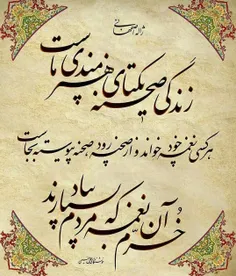 ژاله اصفهانی
زندگی صحنه یکتای هنرمندی ماست
هر کسی نغمه خود خواند و از صحنه رود، صحنه پیوسته بجاست
خرم آن نغمه که مردم بسپارند بیاد